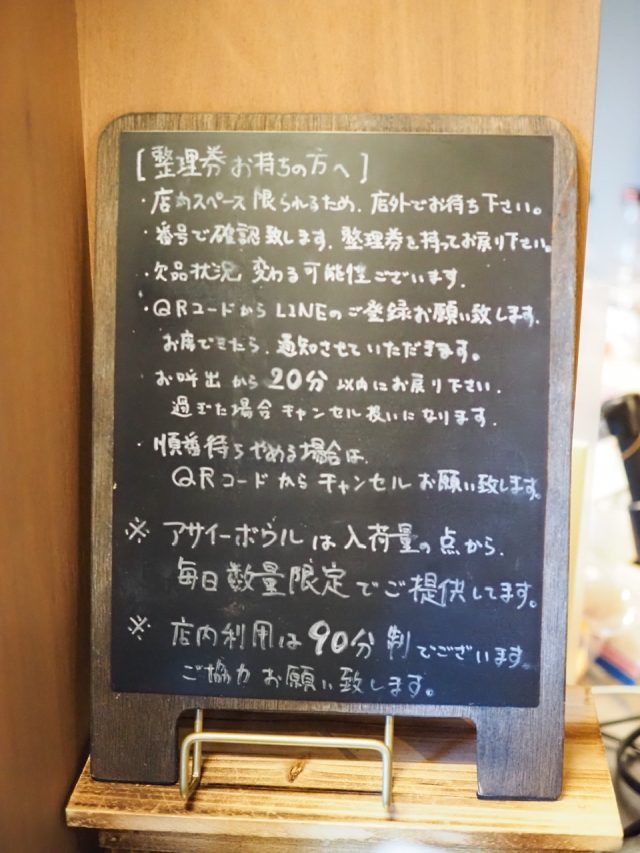 [整理券お持ちの方へ]
・店内スペース限られるため、店外でお待ち下さい。
・番号で確認致します、整理券を持ってお戻り下さい。
・欠品状況 変わる可能性ございます.
・QRコードから LINEのご登録お願い致します.
お席できたら、通知させていただきます。
・お呼出から20分以内にお戻り下さい.
過ぎた場合キャンセル扱いになります.
・順番待ちやめる場合は、
QRコードからキャンセルお願い致します。
※ アサイーボウルは入荷量の点から、
毎日数量限定でご提供してます。
※ 店内利用は90分制でございます
ご協力お願い致します。